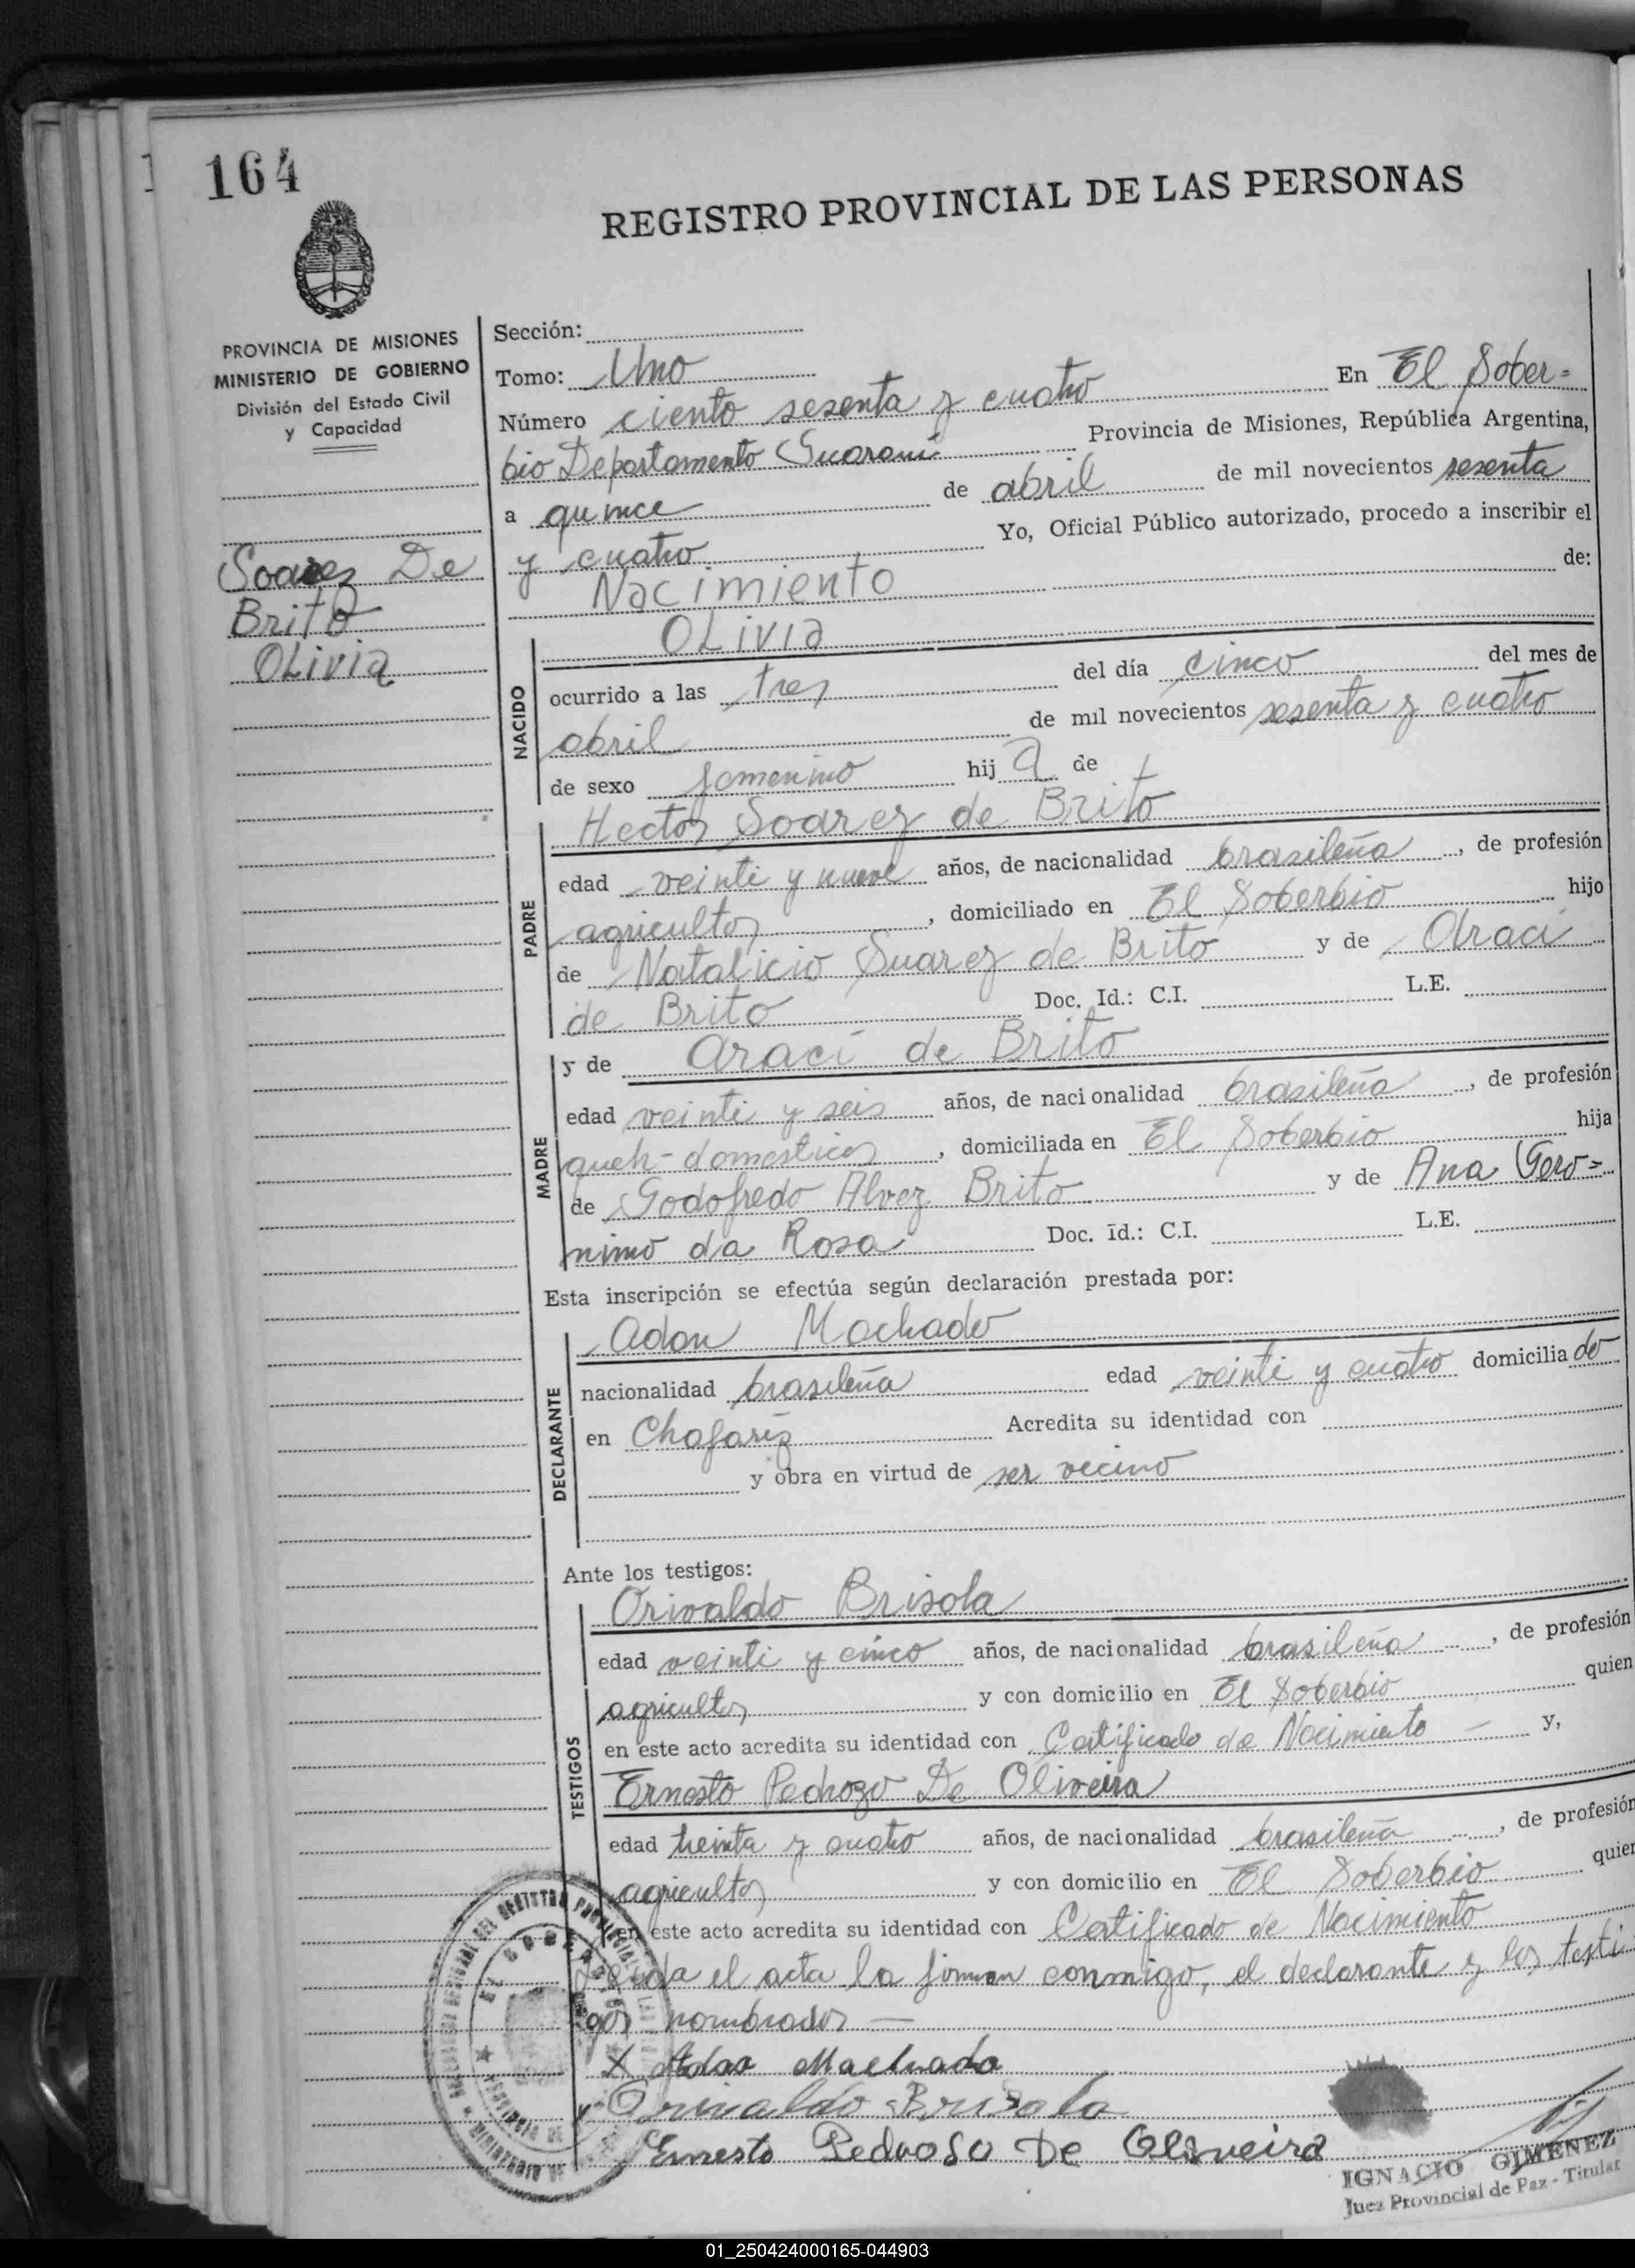 164
REGISTRO PROVINCIAL DE LAS PERSONAS
PROVINCIA DE MISIONES
MINISTERIO DE GOBIERNO
División del Estado Civil
y Capacidad
Soarez De
Brito
OLivia
Sección:
Tomo: Uno
Número ciento sesenta y cuatro En El Sober=
bio Departamento Guaraní Provincia de Misiones, República Argentina,
a quince de abril de mil novecientos sesenta
y cuatro Yo, Oficial Público autorizado, procedo a inscribir el
Nacimiento de:
OLivia
NACIDO
ocurrido a las tres del día cinco del mes de
abril de mil novecientos sesenta y cuatro
de sexo femenino hij a de
Hector Soarez de Brito
PADRE
edad veinti y nueve años, de nacionalidad brasileña, de profesión
agricultor, domiciliado en El Soberbio hijo
de Natalicio Suarez de Brito y de Araci
de Brito Doc. Id.: C.I. L.E.
MADRE
y de Araci de Brito
edad veinti y seis años, de nacionalidad brasileña, de profesión
queh-domesticos, domiciliada en El Soberbio hija
de Godofredo Alvez Brito y de Ana Gero=
nimo da Rosa Doc. Id.: C.I. L.E.
Esta inscripción se efectúa según declaración prestada por:
Adan Machado
DECLARANTE
nacionalidad brasileña edad veinti y cuatro domiciliado
en Chafariz Acredita su identidad con
y obra en virtud de ser vecino
Ante los testigos:
Orivaldo Brisola
TESTIGOS
edad veinti y cinco años, de nacionalidad brasileña, de profesión
agricultor y con domicilio en El Soberbio quien
en este acto acredita su identidad con Certificado de Nacimiento y,
Ernesto Pedrozo De Oliveira
edad treinta y cuatro años, de nacionalidad brasileña, de profesión
agricultor y con domicilio en El Soberbio quien
en este acto acredita su identidad con Certificado de Nacimiento
Leida el acta la firman conmigo, el declarante y los testi
gos nombrados
X Adao Machado
Orivaldo Brisola
Ernesto Pedroso De Oliveira
IGNACIO GIMENEZ
Juez Provincial de Paz - Titular
01_250424000165-044903